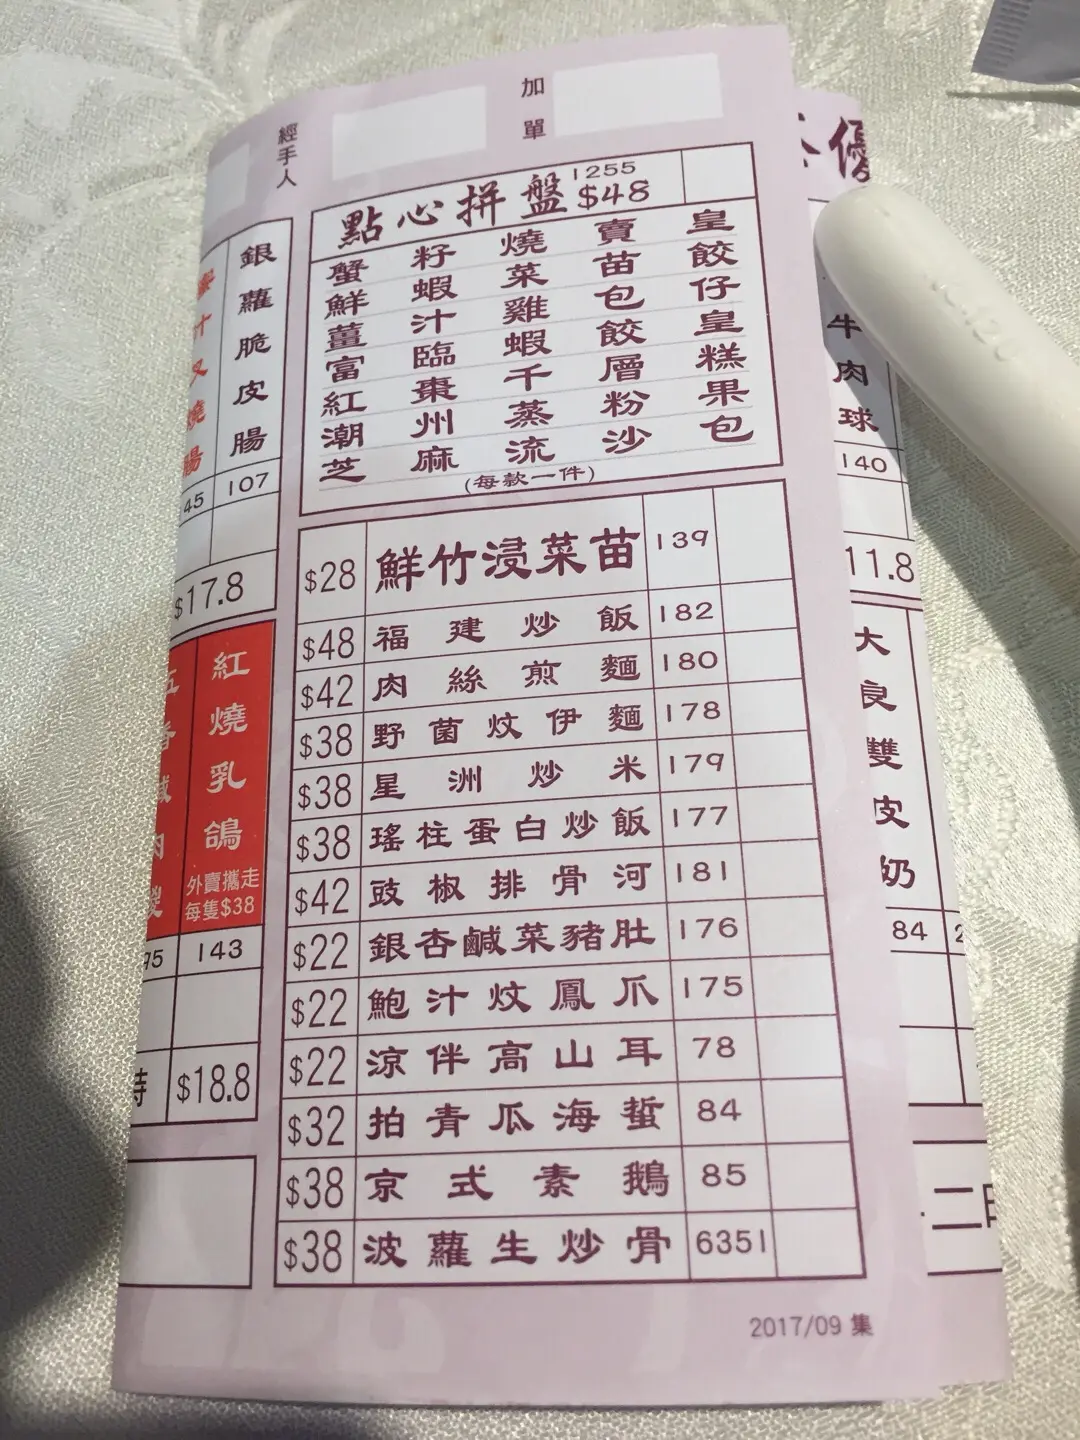 加單
經手人
點心拼盤 1255 $48
蟹籽燒賣皇
鮮蝦菜苗餃
薑汁雞包仔
富臨蝦餃皇
紅棗千層糕
潮州蒸粉果
芝麻流沙包
(每款一件)
$28 鮮竹浸菜苗 139
$48 福建炒飯 182
$42 肉絲煎麵 180
$38 野菌炆伊麵 178
$38 星洲炒米 179
$38 瑤柱蛋白炒飯 177
$42 豉椒排骨河 181
$22 銀杏鹹菜豬肚 176
$22 鮑汁炆鳳爪 175
$22 涼伴高山耳 78
$32 拍青瓜海蜇 84
$38 京式素鵝 85
$38 波蘿生炒骨 6351
2017/09 集
銀蘿脆皮腸
107
汁叉燒腸
45
$17.8
紅燒乳鴿
外賣攜走
每隻$38
143
95
$18.8
優
牛肉球
140
11.8
大良雙皮奶
84
2
二